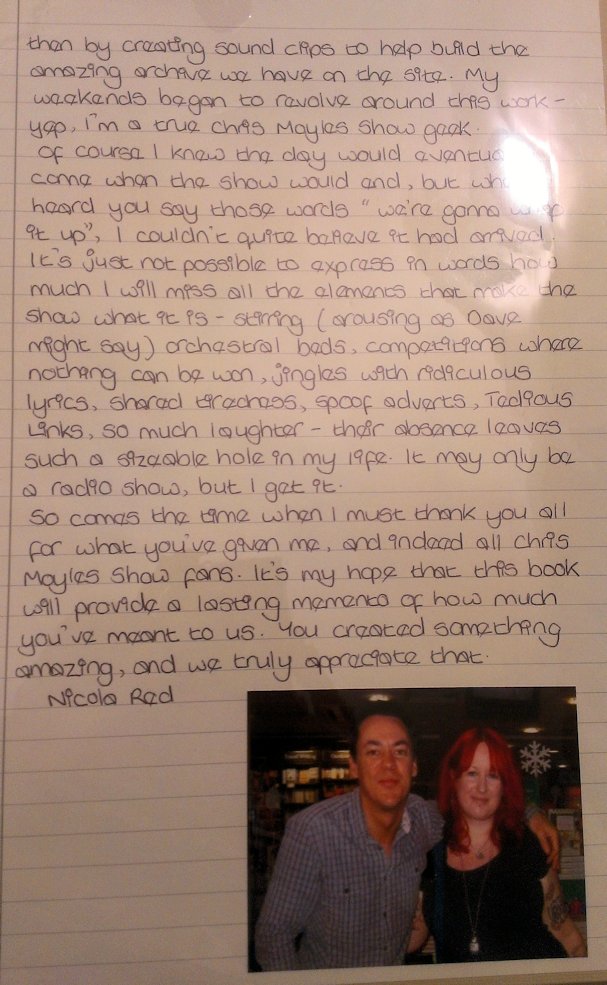 then by creating sound clips to help build the
amazing archive we have on the site. My
weekends began to revolve around this work –
yep, I'm a true Chris Moyles Show geek.
Of course I knew the day would
come when the show would end, but
heard you say those words "we're gonna
it up", I couldn't quite believe it had arrived.
It's just not possible to express in words how
much I will miss all the elements that make the
show what it is – stirring (arousing as Dave
might say) orchestral beds, competitions where
nothing can be won, jingles with ridiculous
lyrics, shared tiredness, spoof adverts, Tedious
Links, so much laughter – their absence leaves
such a sizeable hole in my life. It may only be
a radio show, but I get it.
So comes the time when I must thank you all
for what you've given me, and indeed all Chris
Moyles Show fans. It's my hope that this book
will provide a lasting memento of how much
you've meant to us. You created something
amazing, and we truly appreciate that.
Nicola Red